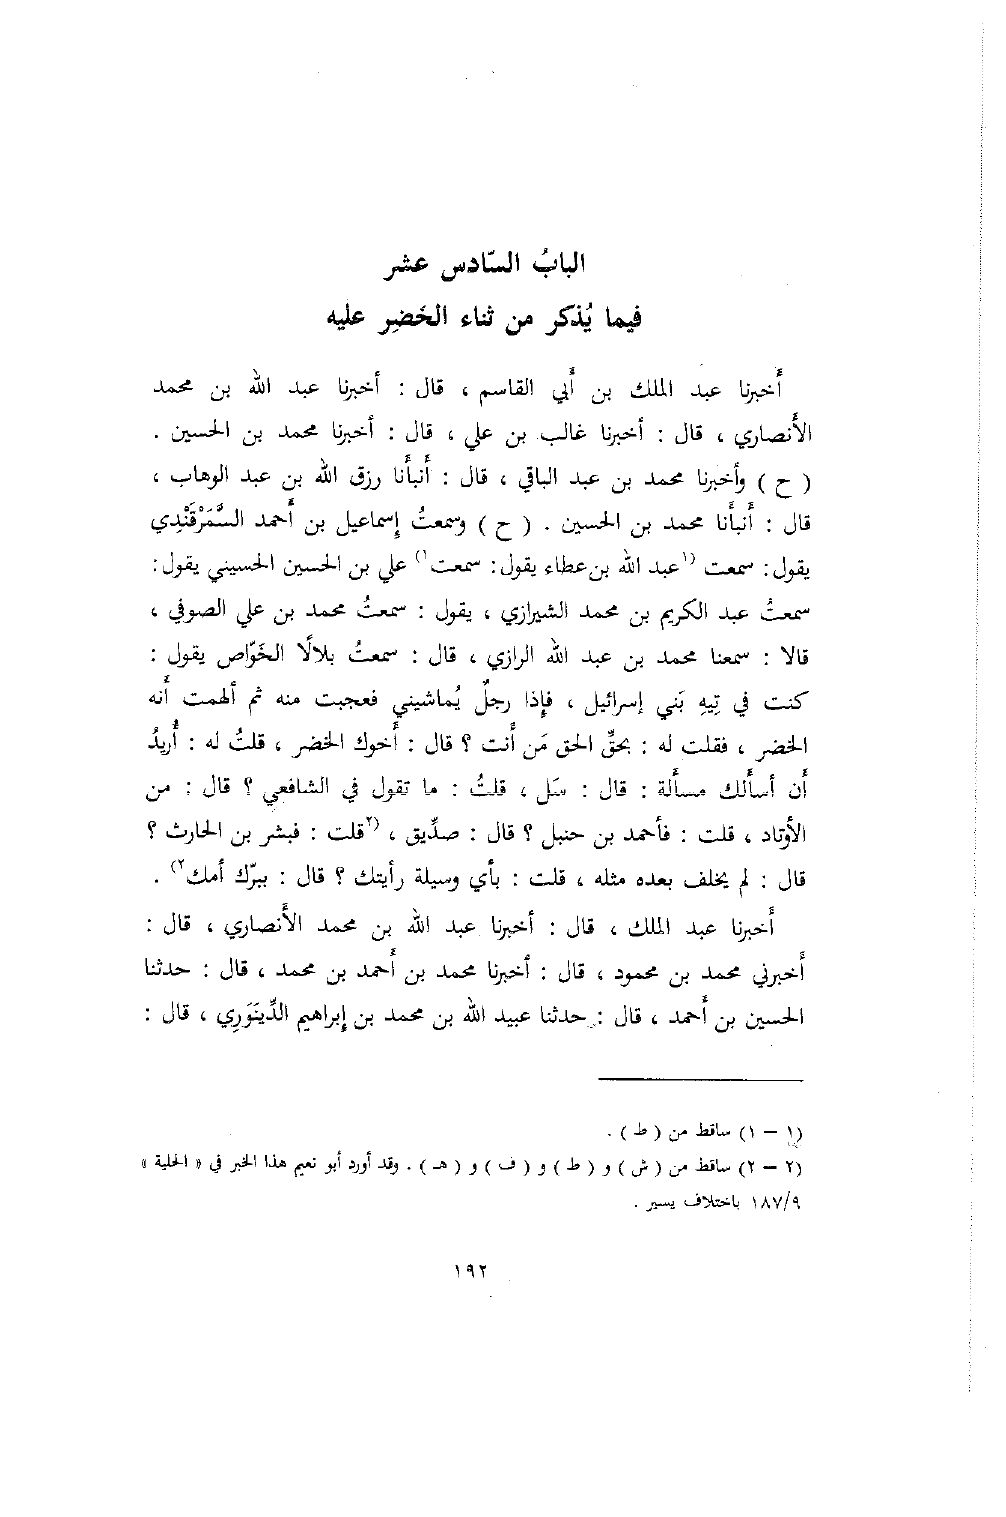 البابُ السّادس عشر
فيما يُذكر من ثناء الخَضِر عليه
أخبرنا عبد الملك بن أبي القاسم ، قال : أخبرنا عبد الله بن محمد
الأنصاري ، قال : أخبرنا غالب بن علي ، قال : أخبرنا محمد بن الحسين .
( ح ) وأخبرنا محمد بن عبد الباقي ، قال : أنبأنا رزق الله بن عبد الوهاب ،
قال : أنبأنا محمد بن الحسين . ( ح ) وسمعتُ إسماعيل بن أحمد السَّمَرْقَنْدِي
يقول : سمعت (١عبد الله بن عطاء يقول : سمعت١) علي بن الحسين الحسيني يقول :
سمعتُ عبد الكريم بن محمد الشيرازي ، يقول : سمعتُ محمد بن علي الصوفي ،
قالا : سمعنا محمد بن عبد الله الرازي ، قال : سمعتُ بلالًا الخَوّاص يقول :
كنت في تِيهِ بَني إسرائيل ، فإذا رجلٌ يُماشيني فعجبت منه ثم أُلهمت أنه
الخضر ، فقلت له : بحقِّ الحق مَن أنت ؟ قال : أخوك الخضر ، قلتُ له : أُريدُ
أن أسألك مسألة : قال : سَل ، قلتُ : ما تقول في الشافعي ؟ قال : من
الأوتاد ، قلت : فأحمد بن حنبل ؟ قال : صدِّيق ، (٢قلت : فبشر بن الحارث ؟
قال : لم يخلف بعده مثله ، قلت : بأي وسيلة رأيتك ؟ قال : ببرّك أمك٢) .
أخبرنا عبد الملك ، قال : أخبرنا عبد الله بن محمد الأنصاري ، قال :
أخبرني محمد بن محمود ، قال : أخبرنا محمد بن أحمد بن محمد ، قال : حدثنا
الحسين بن أحمد ، قال : حدثنا عبيد الله بن محمد بن إبراهيم الدِّينَوَرِي ، قال :
(١ – ١) ساقط من ( ط ) .
(٢ – ٢) ساقط من ( ش ) و ( ط ) و ( ف ) و ( هـ ) . وقد أورد أبو نعيم هذا الخبر في « الحلية »
١٨٧/٩ باختلاف يسير .
١٩٢